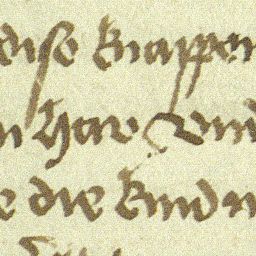 dise knappen
n har vnd
e die kind n